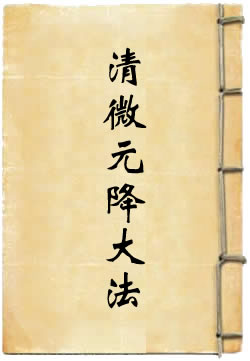 清微元降大法